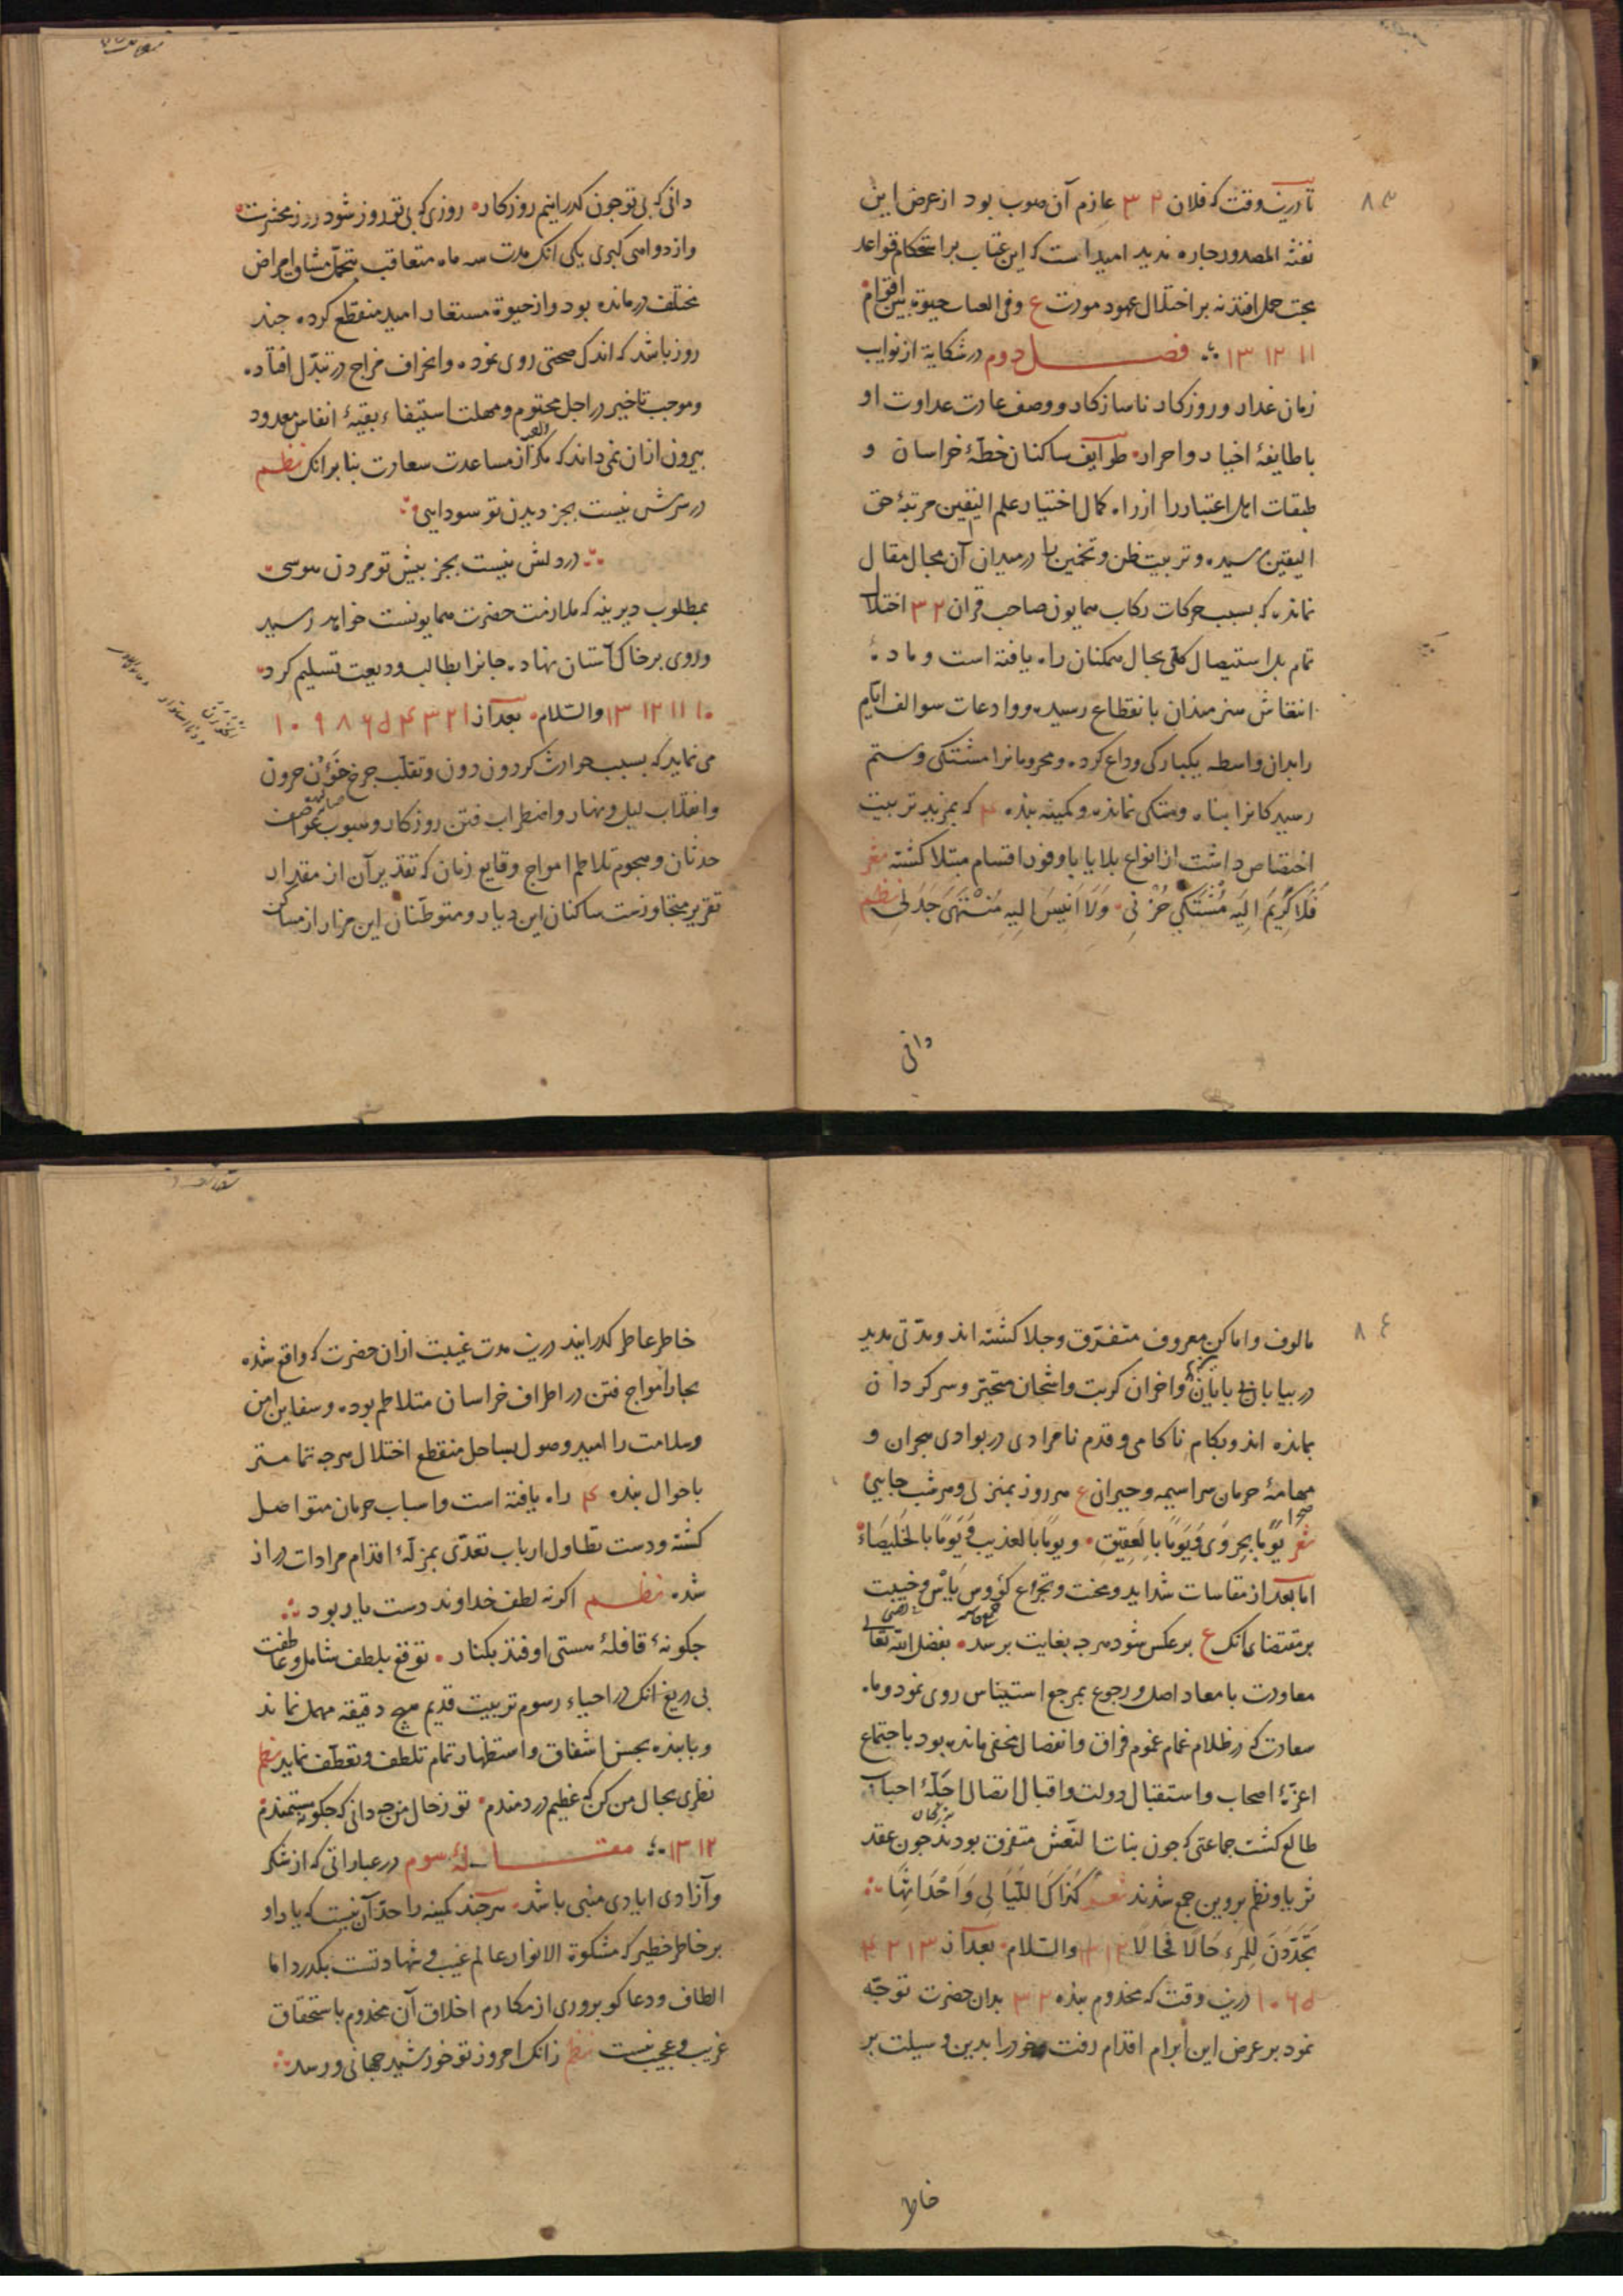 ۸۳
تا درین وقت که فلان ۲ ۳ عازم آن صوب بود از عرض این
نفثة المصدور چاره ندید امیدست که این عتاب بر استحکام قواعد
محبت حمل افتد نه بر اختلال عهود مودت ع وفی العتاب حیوة بین اقوام
۱۱ ۱۲ ۱۳ فصل دوم در شکایة از نوایب
زمان غدار و روزکار ناسازکار و وصف عادت عداوت او
با طایفهٔ اخیار و احرار طوایف ساکنان خطهٔ خراسان و
طبقات اهل اعتبار را از راه کمال اختیار علم الیقین مرتبهٔ حق
الیقین رسیده و تربیت ظن و تخمین را در میدان آن مجال مقال
نمانده که بسبب حرکات رکاب همایون صاحب قران ۲ ۳ اختلال
تمام بل استیصال کلی بحال ممکنان راه یافته است و مادهٔ
انتعاش هنرمندان بانقطاع رسیده و وادعات سوالف ایام
را بدان واسطه یکبارکی وداع کرده و محرومانرا مشتکی و ستم
رسیدکانرا پناه و متکی نمانده و کمینه بنده ۴ که بمزید تربیت
اختصاص داشت از انواع بلایا باوفور اقسام مبتلا کشته شعر
فَلَا کَرِیمَ اِلَیهِ مُشتَکَی حُزنِی وَلَا اَنِیسَ اِلَیهِ مُنتَهَی جَذَلِی نظم
دانی
دانی که بی تو چون کذرانیم روزکار روزی که بی تو روز شود روز محشرست
و از دواهی کبری یکی آنک مدت سه ماه متعاقب بتحمل مشاق امراض
مختلف درمانده بود و از حیوة مستعار امید منقطع کرده چند
روز باشد که اندک صحتی روی نموده و انحراف مزاج در تبدل افتاده
و موجب تاخیر در اجل محتوم و مهلت استیفاء بقیهٔ انفاس معدود
بیرون ازان نمی داند که مکر از مساعدت سعادت بنا بر آنک نظم
در سرش نیست بجز دیدن تو سودایی
در دلش نیست بجز پیش تو مردن هوسی
بمطلوب دیرینه که ملازمت حضرت همایونست خواهد رسید
و روی بر خاک آستان نهاده جانرا بطالب ودیعت تسلیم کرد
۱۰ ۱۱ ۱۲ ۱۳ والسلام بعد از ۱ ۲ ۳ ۴ ۵ ۶ ۸ ۹ ۱۰
می نماید که بسبب حوادث کردون دون و تقلب چرخ خؤن حرون
و انقلاب لیل و نهار و اضطراب فتن روزکار و هبوب عواصف
حدثان و هجوم تلاطم امواج وقایع زمان که تقدیر آن از مقدار
تقریر متجاوزست ساکنان این دیار و متوطنان این مزار از مساکن
۸۴
مالوف و اماکن معروف متفرق و جلا کشته اند و مدتی مدید
در بیابان بی پایان و اخران کربت و اشجان متحیر و سرکردان
بمانده اند و بکام ناکامی و قدم نامرادی در بوادی هجران و
مهامهٔ حرمان سراسیمه و حیران ع هر روز بمنزلی و هر شب جایی
شعر یَومًا بِحُزوَی وَیَومًا بِالعَقِیقِ ویَومًا بالعذیب وَیَومًا بالخَلِیصَاء
اما بعد از مقاسات شداید و محنت و تجرع کؤوس یأس و خیبت
بر مقتضای آنک ع بر عکس شود هرچه بغایت برسد بفضل الله تعالی
معاودت با معاد اصل و رجوع بمرجع استیناس روی نمود و ماه
سعادت که در ظلام غمام غموم فراق و انفصال مخفی مانده بود باجتماع
اعزّهٔ اصحاب و استقبال دولت و اقبال اتصال اجلّهٔ احباب
طالع کشت جماعتی که چون بنات النعش متفرق بودند چون عقد
ثریا و نظم پروین جمع شدند شعر کَذَاکَ اللَّیَالِی وَاَحدَاثِهَا
تَجَدَّدنَ لِلمَرءِ حَالًا فَحَالًا ۱۲ ۱۳ والسلام بعد از ۱ ۲ ۳ ۴
۵ ۶ ۱۰ درین وقت که مخدوم بنده ۲ ۳ بدان حضرت توجه
نمود بر عرض این ابرام اقدام رفت و خود را بدین وسیلت بر
خاطر
خاطر عاطر کذرانید درین مدت غیبت ازان حضرت که واقع شده
بحار امواج فتن در اطراف خراسان متلاطم بوده و سفاین امن
و سلامت را امید وصول بساحل منقطع اختلال هرچه تمامتر
باحوال بنده ۴ راه یافته است و اسباب حرمان متواصل
کشته و دست تطاول ارباب تعدی بمزلّهٔ اقدام مرادات دراز
شده نظم اکر نه لطف خداوند دست یار بود
چکونهٔ قافلهٔ هستی اوفتد بکنار توقع بلطف شامل و عاطفت
بی دریغ آنک در احیاء رسوم تربیت قدیم هیچ دقیقه مهمل نماند
و با بنده بحسن اشفاق و استظهار تمام تلطف و تعطف نماید نظم
نظری بحال من کن که عظیم دردمندم تو ز حال من چه دانی که چکونه مستمندم
۱۲ ۱۳ مقالهٔ سوم در عباراتی که از شکر
و آزادی ایادی منبی باشد هرچند کمینه را حد آن نیست که یاد او
بر خاطر خطیر که مشکوة الانوار عالم غیب و شهادتست بکذرد اما
الطاف و دعاکو پروری از مکارم اخلاق آن مخدوم باستحقاق
غریب و عجیب نیست نظم زانک امروز تو خورشید جهانی و رسد